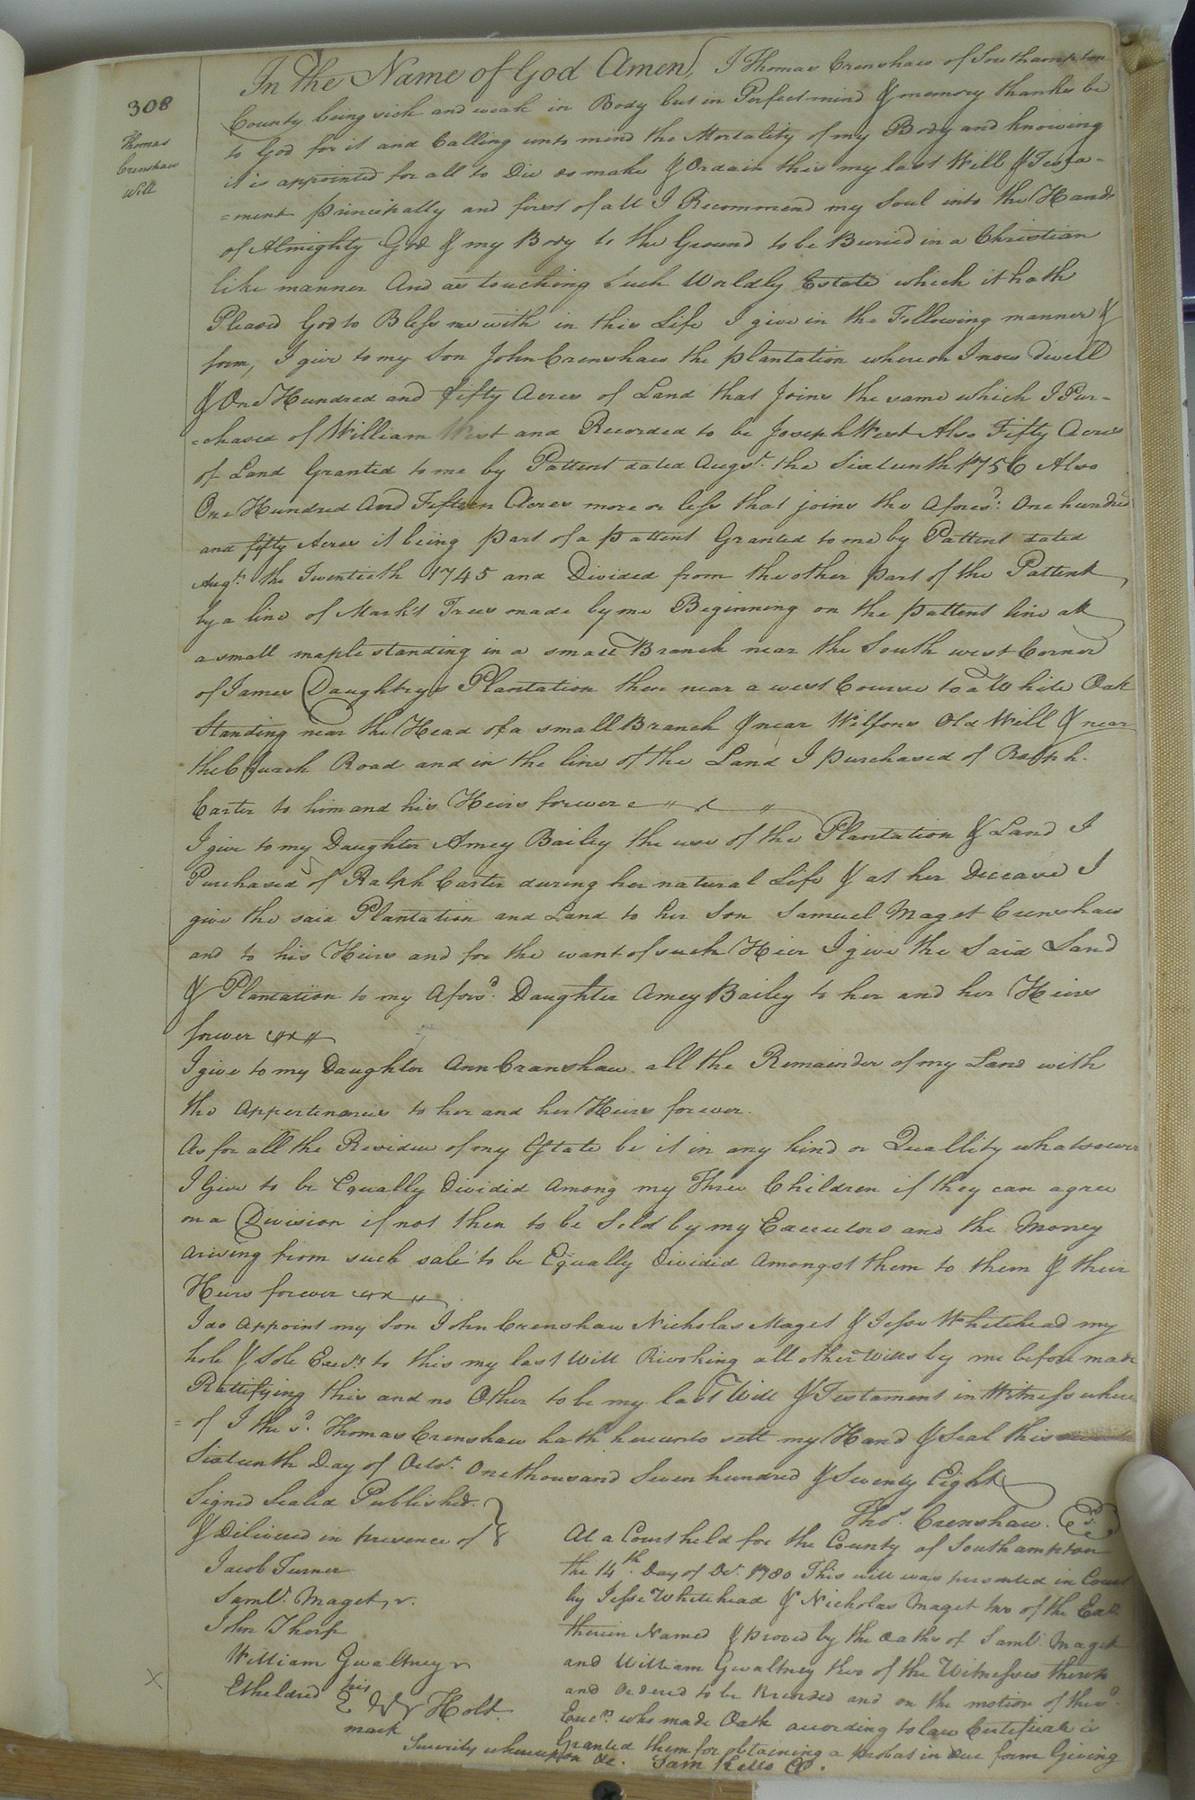 308
Thomas
Crenshaw
Will
In the Name of God Amen, I Thomas Crenshaw of Southampton
County being sick and weak in Body but in Perfect mind & memory thanks be
to God for it and Calling unto mind the Mortality of my Body and knowing
it is appointed for all to Die do make & Ordain this my last Will & Testa-
=ment principally and first of all I Recommend my Soul into the Hands
of Almighty God & my Body to the Ground to be Buried in a Christian
like manner And as touching Such Worldly Estate which it hath
Pleasd God to Bless me with in this Life I give in the Following manner &
form, I give to my Son John Crenshaw the plantation whereon I now dwell
& One Hundred and fifty Acres of Land that Joins the same which I Pur-
=chased of William West and Recorded to be Joseph West Also Fifty Acres
of Land Granted to me by Pattent dated Augst. the Sixteenth 1756 Also
One Hundred And Fifteen Acres more or less that joins the Aforesd. One hundred
and fifty Acres it being part of a pattent Granted to me by Pattent dated
Augt. the Twentieth 1745 and Divided from the other part of the Pattent
by a line of Mark't Trees made by me Beginning on the pattent line at
a small maple standing in a small Branch near the South west Corner
of James Daughtrys Plantation then near a west Course to a White Oak
Standing near the Head of a small Branch & near Wilsons Old Will & near
the Church Road and in the line of the Land I purchased of Ralph.
Carter to him and his Heirs forever
I give to my Daughter Amey Bailey the use of the Plantation & Land I
Purchased of Ralph Carter during her natural Life & at her Decease I
give the said Plantation and Land to her Son Samuel Maget Crenshaw
and to his Heirs and for the want of such Heir I give the Said Land
& Plantation to my Aforsd. Daughter Amey Bailey to her and her Heirs
forever
I give to my Daughter Ann Cranshaw all the Remainder of my Land with
the appertenances to her and her Heirs forever.
As for all the Residue of my Estate be it in any kind or Quallity whatsoever
I Give to be Equally Divided Among my Three Children if they can agree
on a Division if not then to be Sold by my Executors and the Money
arising from such sale to be Equally Divided Amongst them to them & their
Heirs forever
I do appoint my Son John Crenshaw Nicholas Maget & Jesse Whitehead my
hole & Sole Exers. to this my last Will Rivoking all other Wills by me before made
Rattifying this and no Other to be my last Will & Testament in Witness where
=of I the sd. Thomas Crenshaw hath hereunto sett my Hand & Seal this
Sixteenth Day of Octor. One thousand Seven hundred & Seventy Eight
Signed Sealed Published.
& Delivered in presence of
Thos. Crenshaw.
Jacob Turner
Saml. Maget, r.
John Thorp
William Gwaltney
Etheldred his Holt.
mark
At a Court held for the County of Southampton
the 14th. Day of Dr. 1780 This will was presented in Court
by Jesse Whitehead & Nicholas Maget two of the Exrs
therein Named & proved by the Oaths of Saml. Maget
and William Gwaltney two of the Witnesses thereto
and Ordered to be Recorded and on the motion of the sd.
Execrs. who made Oath according to law Certificate is
Granted them for obtaining a probat in due form Giving
Security whereupon &c. Sam Kello